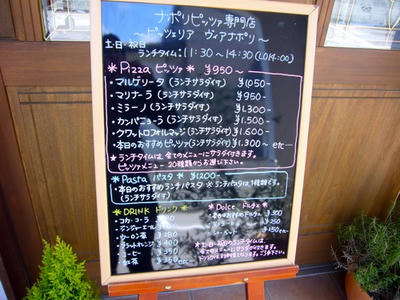 ナポリピッツァ専門店
～ピッツェリア ヴィアナポリ～
土・日・祝日
ランチタイム：11:30～14:30(LO14:00)
＊Pizza ピッツァ＊ ¥950～
・マルゲリータ(ランチサラダ付) ¥1050-
・マリナーラ(ランチサラダ付) ¥950-
・ミラーノ(ランチサラダ付) ¥1.300-
・カンパニョーラ(ランチサラダ付) ¥1.500-
・クワットロフォルマッジ(ランチサラダ付) ¥1.600-
・本日のおすすめピッツァ(ランチサラダ付) ¥1.300～ etc…
＊ランチタイムは全てのメニューにサラダ付きます。
ピッツァメニュー20種類からお選び下さい。
＊Pasta パスタ＊ ¥1200-
・本日のおすすめランチパスタ ※ランチパスタは1種類です。
(ランチサラダ付)
＊DRINK ドリンク＊
・コカ・コーラ
・ジンジャーエール
・ウーロン茶
・コーヒー
・紅茶
＊Dolce ドルチェ＊
¥300
¥250
¥150 etc
＊土・日・祝のランチタイムは、
全てのメニューにサラダ付きます。